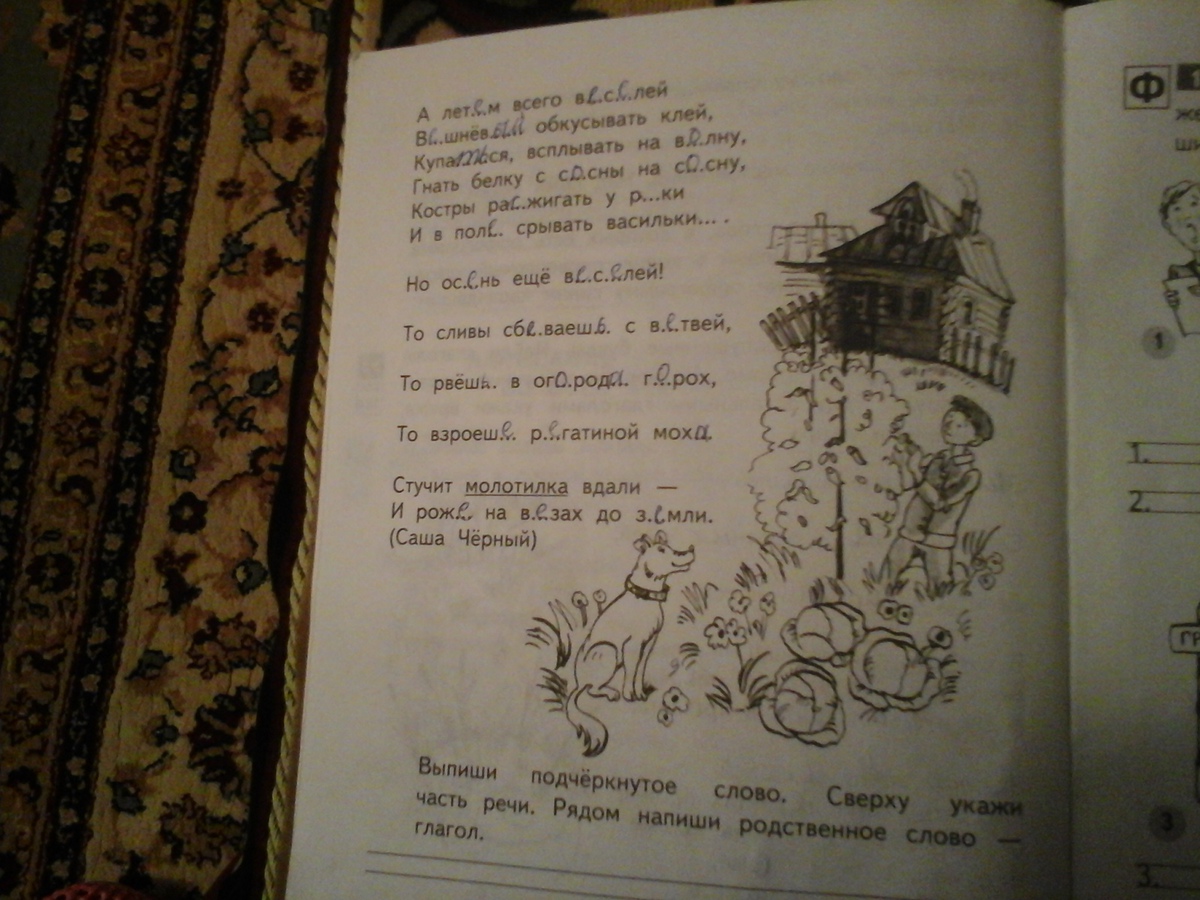 А лет.е.м всего в.е.с.е.лей
В.и.шнёвый обкусывать клей,
Купаться, всплывать на в.о.лну,
Гнать белку с с.о.сны на с.о.сну,
Костры рас.жигать у р...ки
И в пол.е. срывать васильки... .
Но ос.е.нь ещё в.е.с.е.лей!
То сливы сб.и.ваешь. с в.е.твей,
То рвёшь. в ог.о.рода. г.о.рох,
То взроешь. р.о.гатиной мох.
Стучит молотилка вдали —
И рожь. на в.о.зах до з.е.мли.
(Саша Чёрный)
Выпиши подчёркнутое слово. Сверху укажи
часть речи. Рядом напиши родственное слово —
глагол.
Ф
же
ши
1
1.
2.
3
3.